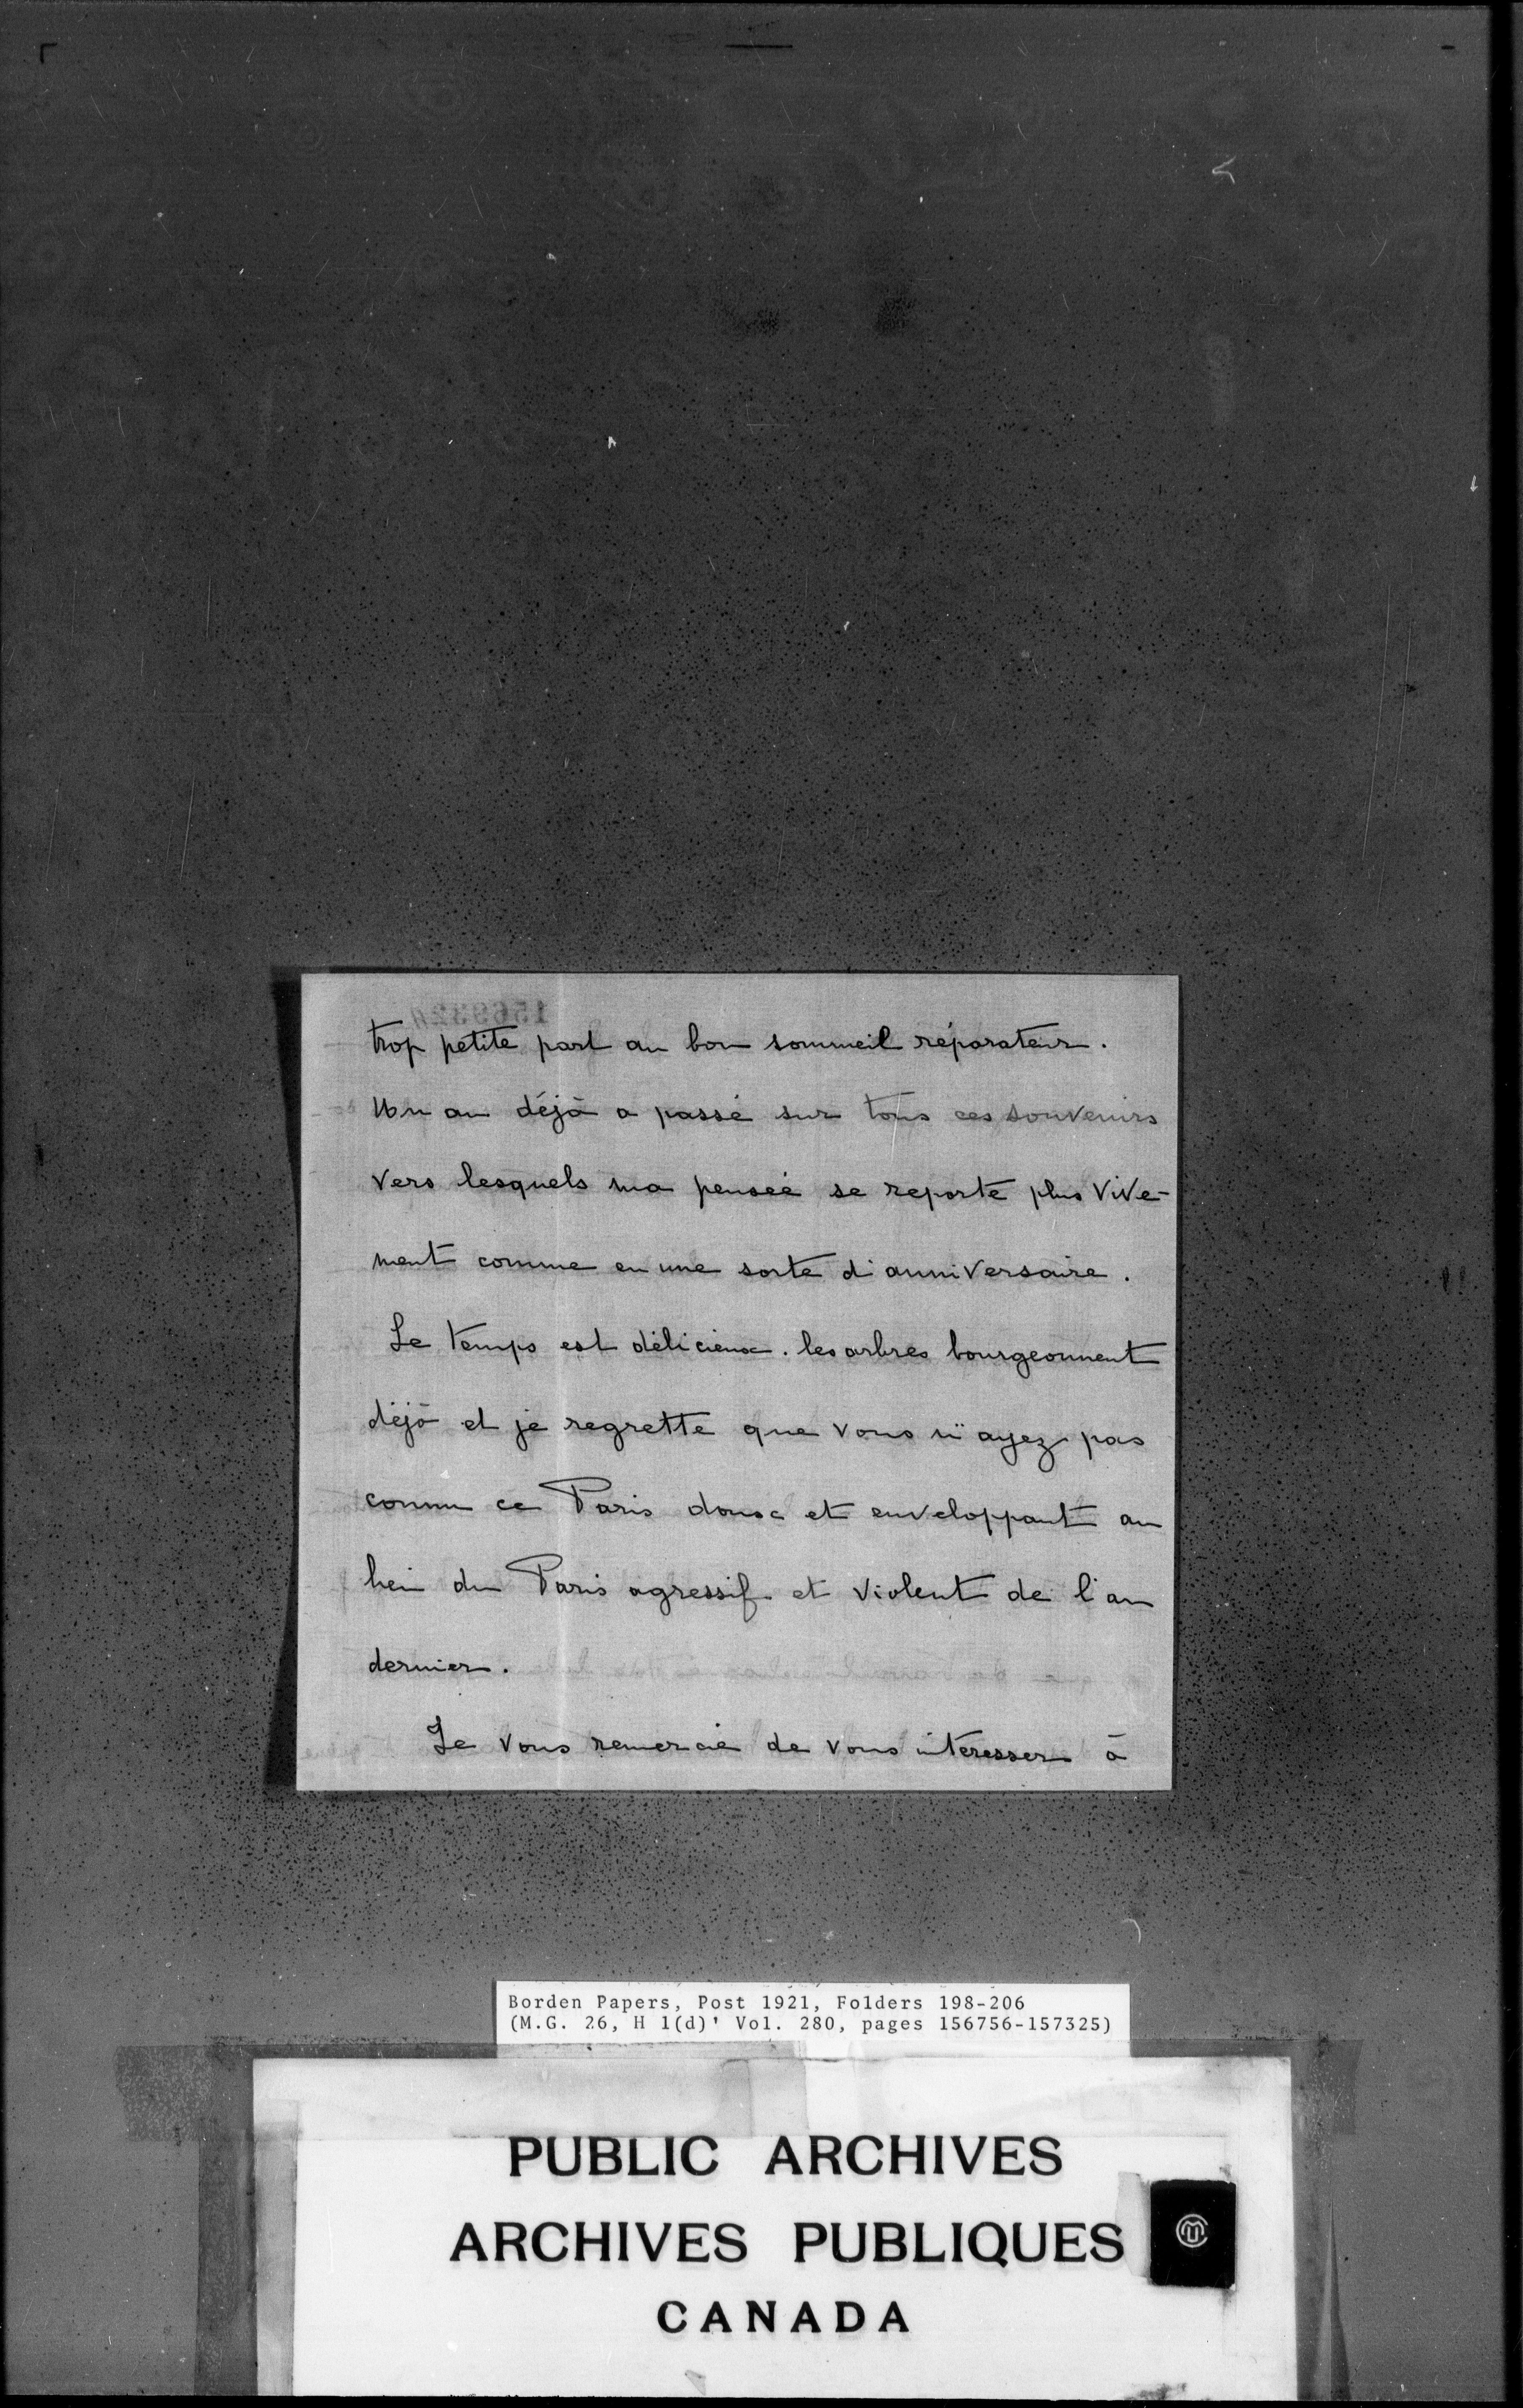 trop petite part au bon sommeil réparateur.
Un an déjà a passé sur tous ces souvenirs
vers lesquels ma pensée se reporte plus vive-
ment comme en une sorte d'anniversaire.
Le temps est délicieux. les arbres bourgeonnent
déjà et je regrette que vous n'ayez pas
connu ce Paris doux et enveloppant au
lieu du Paris agressif et violent de l'an
dernier.
Je vous remercie de vous intéresser à
Borden Papers, Post 1921, Folders 198-206
(M.G. 26, H 1(d)' Vol. 280, pages 156756-157325)
PUBLIC ARCHIVES
ARCHIVES PUBLIQUES
CANADA